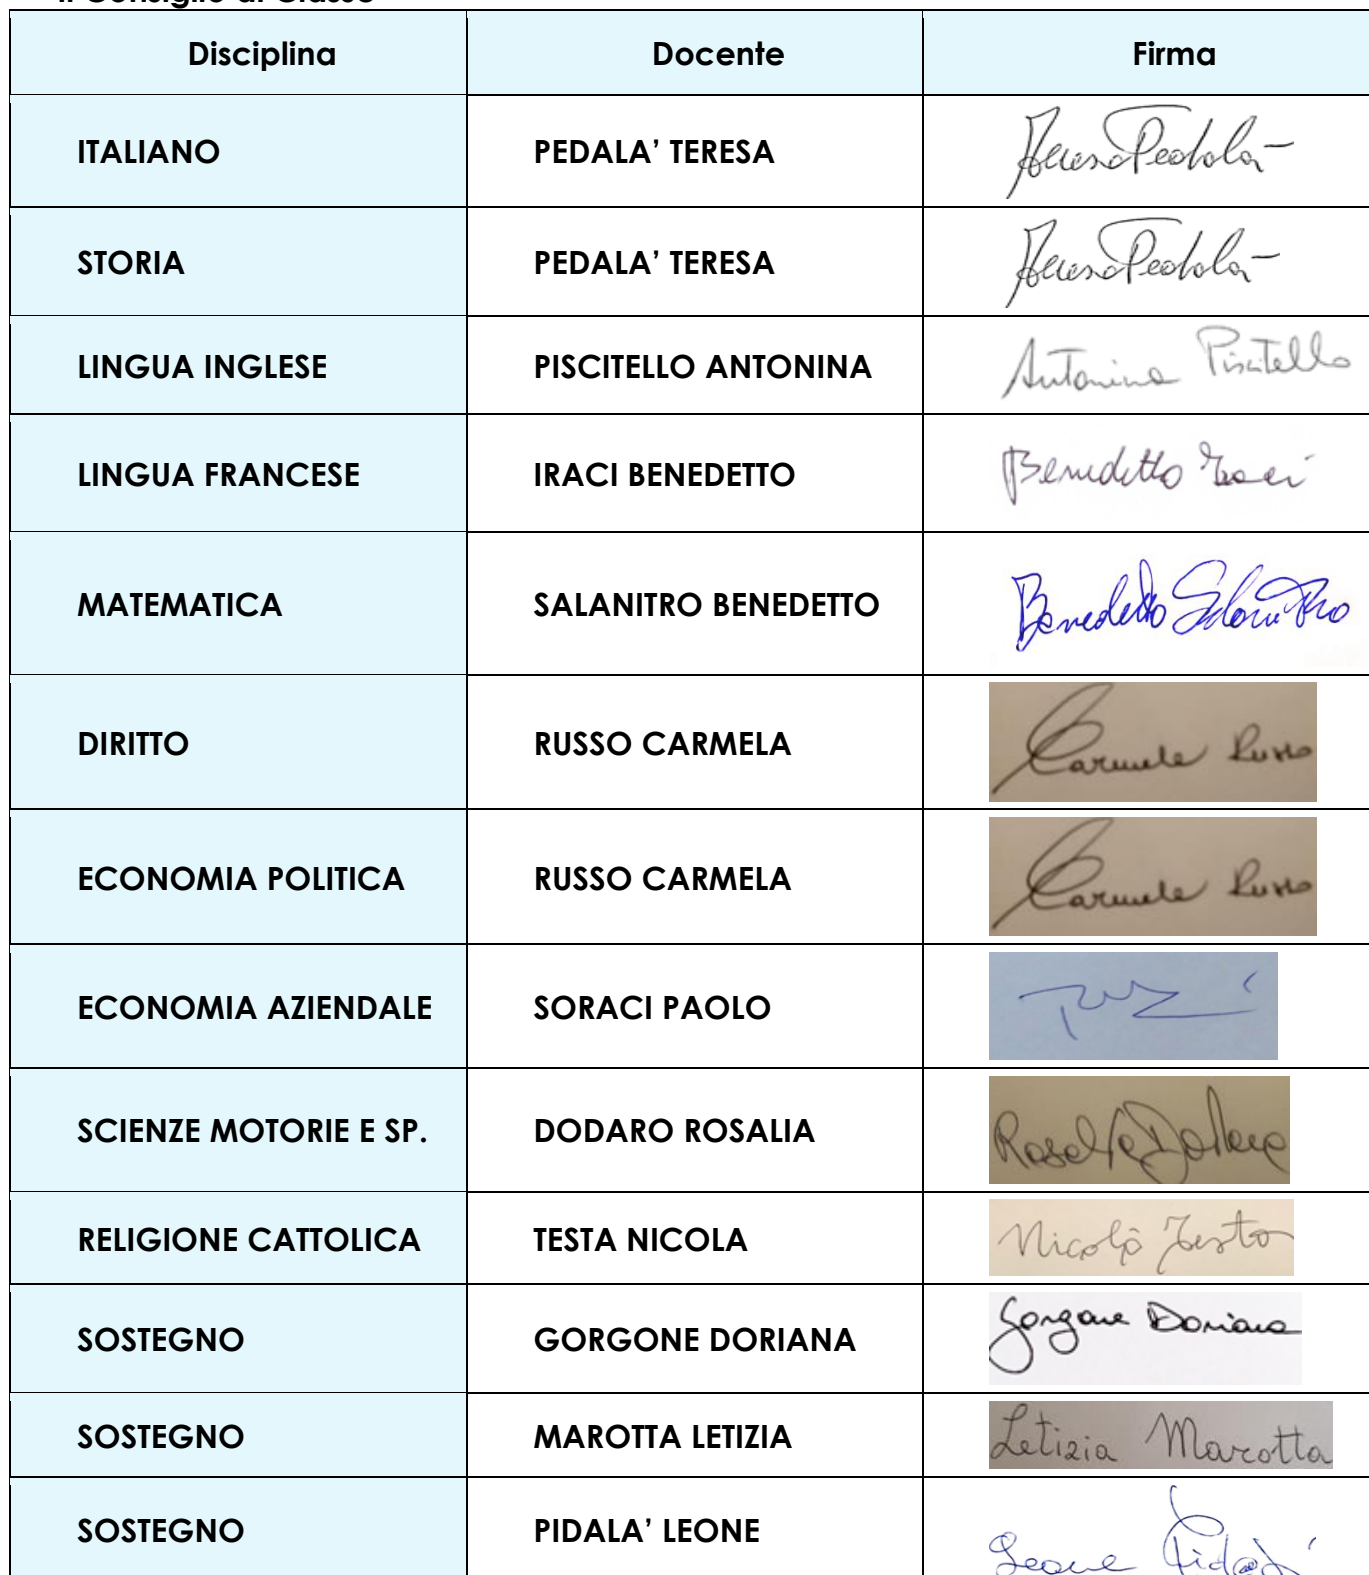 Il Consiglio di Classe
Disciplina Docente Firma
ITALIANO PEDALA’ TERESA Teresa Pedalà
STORIA PEDALA’ TERESA Teresa Pedalà
LINGUA INGLESE PISCITELLO ANTONINA Antonina Piscitello
LINGUA FRANCESE IRACI BENEDETTO Benedetto Iraci
MATEMATICA SALANITRO BENEDETTO Benedetto Salanitro
DIRITTO RUSSO CARMELA Carmela Russo
ECONOMIA POLITICA RUSSO CARMELA Carmela Russo
ECONOMIA AZIENDALE SORACI PAOLO
SCIENZE MOTORIE E SP. DODARO ROSALIA Rosalia Dodaro
RELIGIONE CATTOLICA TESTA NICOLA Nicolò Testa
SOSTEGNO GORGONE DORIANA Gorgone Doriana
SOSTEGNO MAROTTA LETIZIA Letizia Marotta
SOSTEGNO PIDALA’ LEONE Leone Pidalà